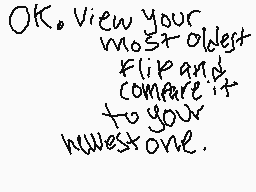 OK. View your
most oldest
flip and
compare it
to your
newest one.